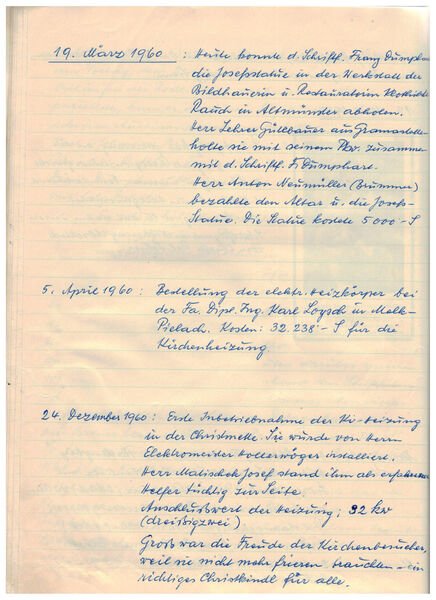 19. März 1960 : Heute konnte d. Schriftf. Franz Dumphart
die Josefstatue in der Werkstatt der
Bildhauerin u. Restauratorin
Rauch in Altmünster abholen.
Herr Lehrer Güllbauer aus Gramastetten
holte sie mit seinem Pkw. zusammen
mit d. Schriftf. F. Dumphart.
Herr Anton Neumüller (Brummer)
bezahlte den Altar u. die Josefs-
Statue. Die Statue kostete 5000.-S
5. April 1960 : Bestellung der elektr. Heizkörper bei
der Fa. Dipl. Ing. Karl Loysch in Melk-
Pielach. Kosten: 32.238.- S für die
Kirchenheizung.
24. Dezember 1960 : Erste Inbetriebnahme der Ki-Heizung
in der Christmette. Sie wurde von Herrn
Elektromeister installiert.
Herr Matischek Josef stand ihm als erfahrener
Helfer tüchtig zur Seite.
Anschlußwert der Heizung: 32 kw
(dreißigzwei)
Groß war die Freude der Kirchenbesucher,
weil sie nicht mehr frieren brauchten - ein
richtiges Christkindl für alle.